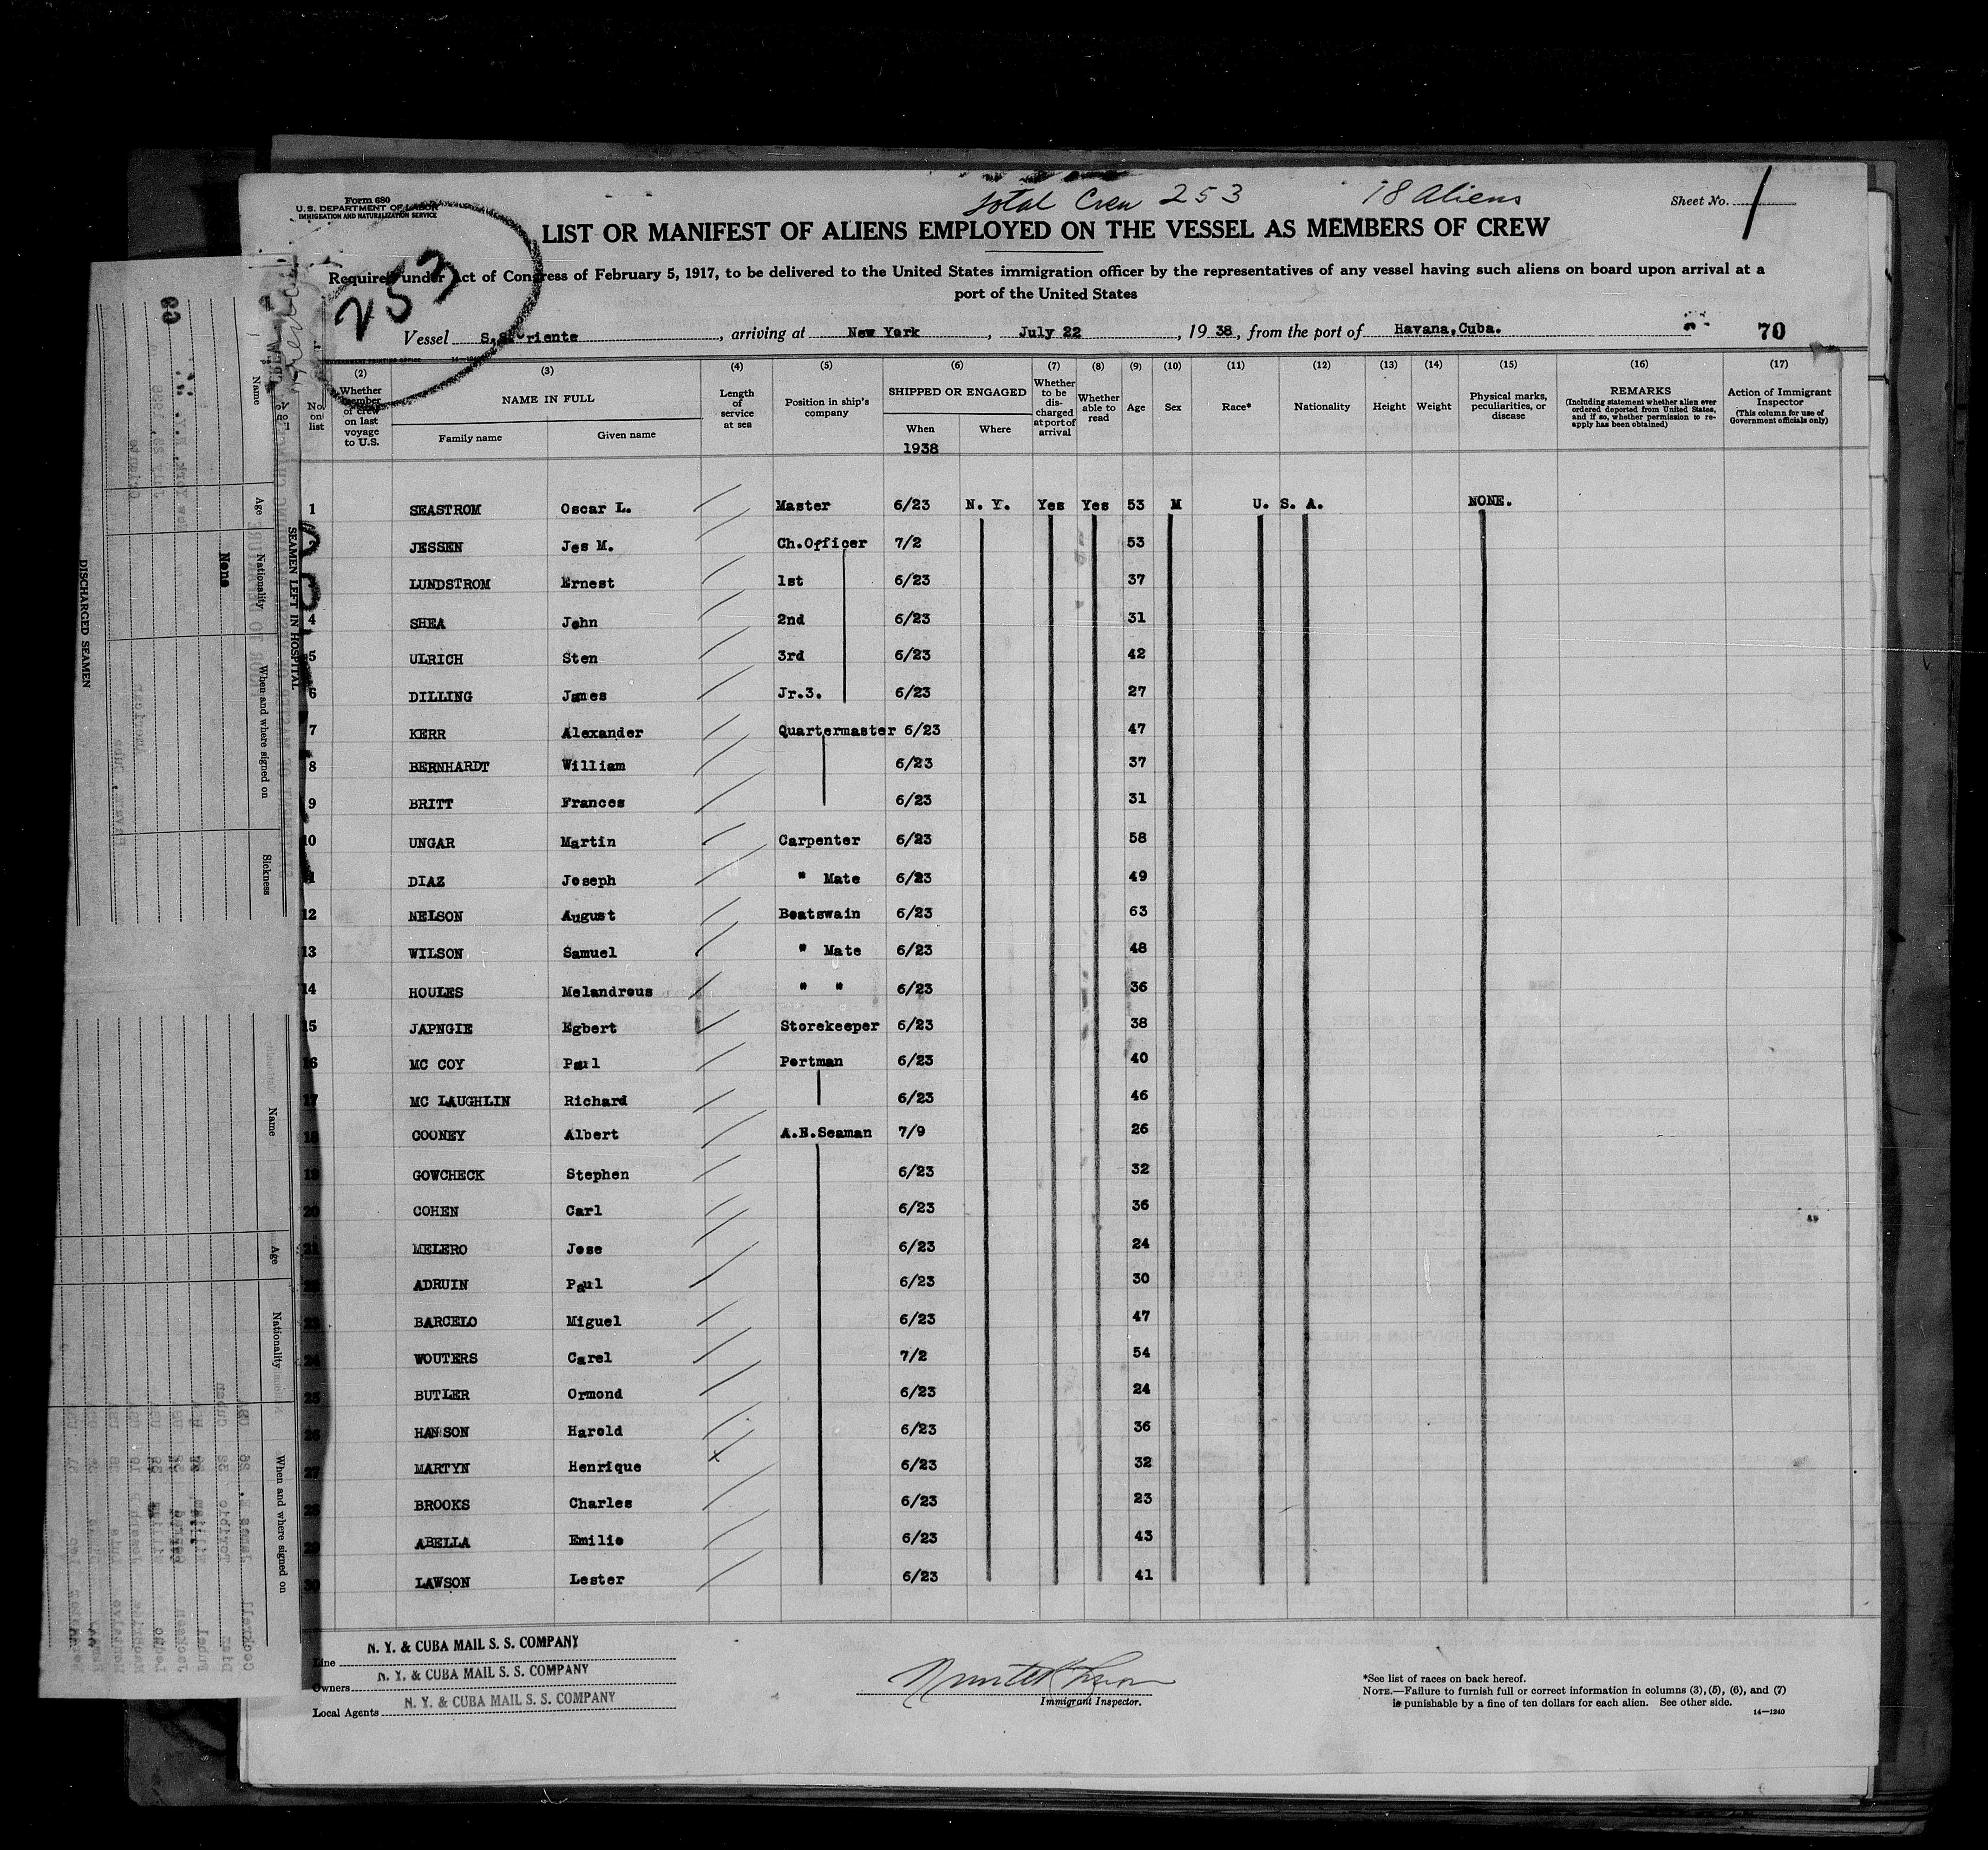 Form 680
U.S. DEPARTMENT OF LABOR
IMMIGRATION AND NATURALIZATION SERVICE
total Crew 253 18 Aliens
Sheet No. 1
253
LIST OR MANIFEST OF ALIENS EMPLOYED ON THE VESSEL AS MEMBERS OF CREW
Required under Act of Congress of February 5, 1917, to be delivered to the United States immigration officer by the representatives of any vessel having such aliens on board upon arrival at a
port of the United States
Vessel S.S. Oriente, arriving at New York, July 22, 1938, from the port of Havana, Cuba. 70
No. on list (2) Whether member of crew on last voyage to U.S. (3) NAME IN FULL Family name Given name (4) Length of service at sea (5) Position in ship's company (6) SHIPPED OR ENGAGED When Where (7) Whether to be discharged at port of arrival (8) Whether able to read (9) Age (10) Sex (11) Race* (12) Nationality (13) Height (14) Weight (15) Physical marks, peculiarities, or disease (16) REMARKS (Including statement whether alien ever ordered deported from United States, and if so, whether permission to re-apply has been obtained) (17) Action of Immigrant Inspector (This column for use of Government officials only)
1938
1 SEASTROM Oscar L. Master 6/23 N. Y. Yes Yes 53 M U. S. A. NONE.
2 JESSEN Jes M. Ch.Officer 7/2 53
3 LUNDSTROM Ernest 1st 6/23 37
4 SHEA John 2nd 6/23 31
5 ULRICH Sten 3rd 6/23 42
6 DILLING James Jr.3. 6/23 27
7 KERR Alexander Quartermaster 6/23 47
8 BERNHARDT William 6/23 37
9 BRITT Frances 6/23 31
10 UNGAR Martin Carpenter 6/23 58
11 DIAZ Joseph " Mate 6/23 49
12 NELSON August Boatswain 6/23 63
13 WILSON Samuel " Mate 6/23 48
14 HOULES Melandrous " " 6/23 36
15 JAPNGIE Egbert Storekeeper 6/23 38
16 MC COY Paul Portman 6/23 40
17 MC LAUGHLIN Richard 6/23 46
18 COONEY Albert A.B.Seaman 7/9 26
19 GOWCHECK Stephen 6/23 32
20 COHEN Carl 6/23 36
21 MELERO Jose 6/23 24
22 ADRUIN Paul 6/23 30
23 BARCELO Miguel 6/23 47
24 WOUTERS Carel 7/2 54
25 BUTLER Ormond 6/23 24
26 HANSON Harold 6/23 36
27 MARTYN Henrique 6/23 32
28 BROOKS Charles 6/23 23
29 ABELLA Emilio 6/23 43
30 LAWSON Lester 6/23 41
Line N. Y. & CUBA MAIL S. S. COMPANY
Owners N. Y. & CUBA MAIL S. S. COMPANY
Local Agents N. Y. & CUBA MAIL S. S. COMPANY
Immigrant Inspector.
*See list of races on back hereof.
NOTE.—Failure to furnish full or correct information in columns (3), (5), (6), and (7)
is punishable by a fine of ten dollars for each alien. See other side.
14—1240
63
SEAMEN LEFT IN HOSPITAL
Name Age Nationality When and where signed on Sickness
None
DISCHARGED SEAMEN
Name Age Nationality When and where signed on